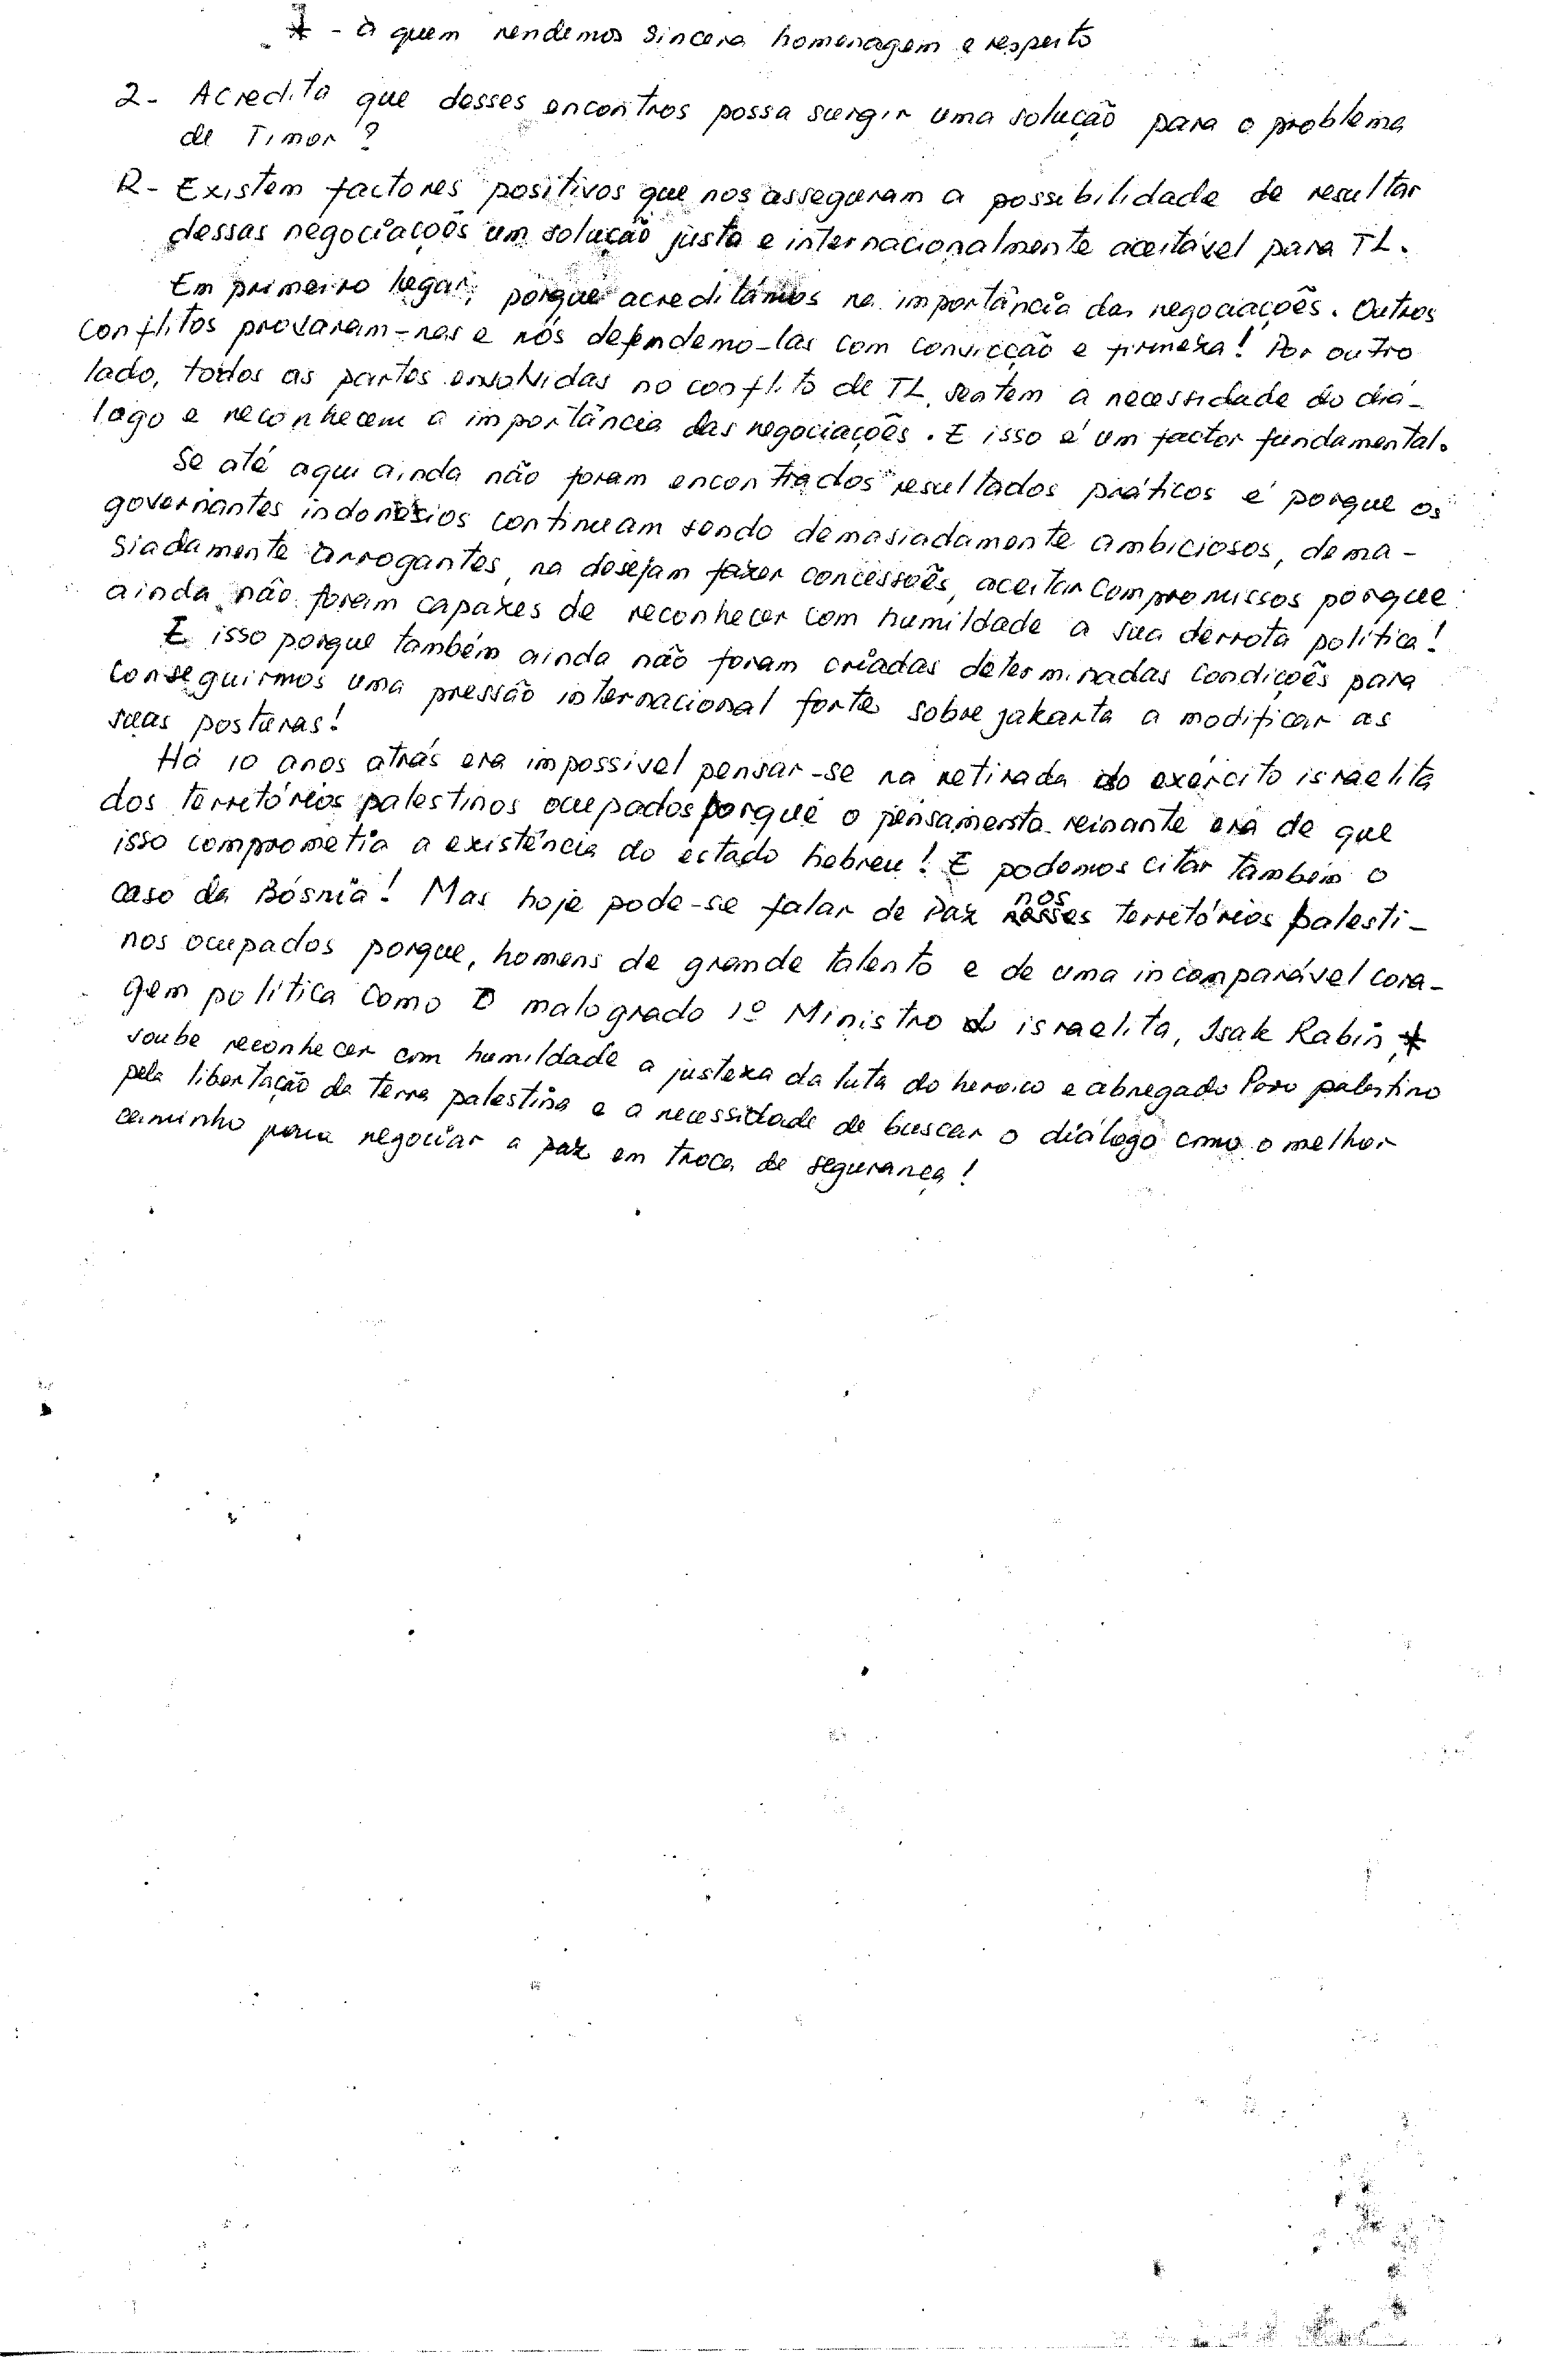 * - à quem rendemos sincera homenagem e respeito
2- Acredita que desses encontros possa surgir uma solução para o problema
de Timor?
R- Existem factores positivos que nos asseguram a possibilidade de resultar
dessas negociações um solução justa e internacionalmente aceitável para TL.
Em primeiro lugar, porque acreditámos na importância das negociações. Outros
conflitos provaram-nas e nós defendemo-las com convicção e firmeza! Por outro
lado, todos as partes envolvidas no conflito de TL, sentem a necessidade do diá-
logo e reconhecem a importância das negociações. E isso é um factor fundamental.
Se até aqui ainda não foram encontrados resultados práticos é porque os
governantes indonésios continuam sendo demasiadamente ambiciosos, dema-
siadamente arrogantes, na desejam fazer concessões, aceitar compromissos porque
ainda não foram capazes de reconhecer com humildade a sua derrota política!
E isso porque também ainda não foram criadas determinadas condições para
conseguirmos uma pressão internacional forte sobre jakarta a modificar as
suas posturas!
Há 10 anos atrás era impossível pensar-se na retirada do exército israelita
dos territórios palestinos ocupados porque o pensamento reinante era de que
isso comprometia a existência do estado hebreu! E podemos citar também o
caso da Bósnia! Mas hoje pode-se falar de Paz nos territórios palesti-
nos ocupados porque, homens de grande talento e de uma incomparável cora-
gem política como o malogrado 1º Ministro israelita, Isak Rabin, *
soube reconhecer com humildade a justeza da luta do heroico e abnegado Povo palestino
pela libertação da terra palestina e a necessidade de buscar o diálogo como o melhor
caminho para negociar a paz em troca de segurança!